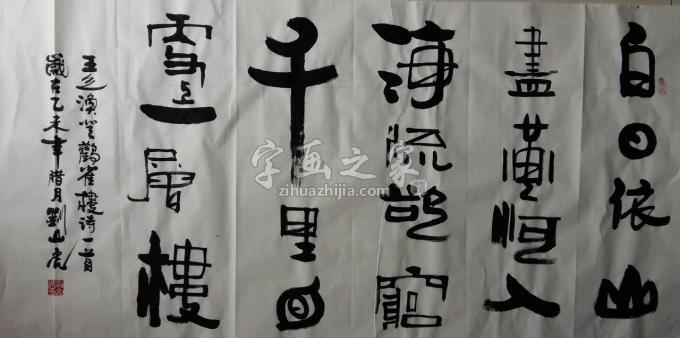 白日依山
盡黃河入
海流欲窮
千里目
更上一層樓
王之渙登鸛雀樓詩一首
歲在乙未年腊月劉山虎
字画之家
zihuazhijia.com